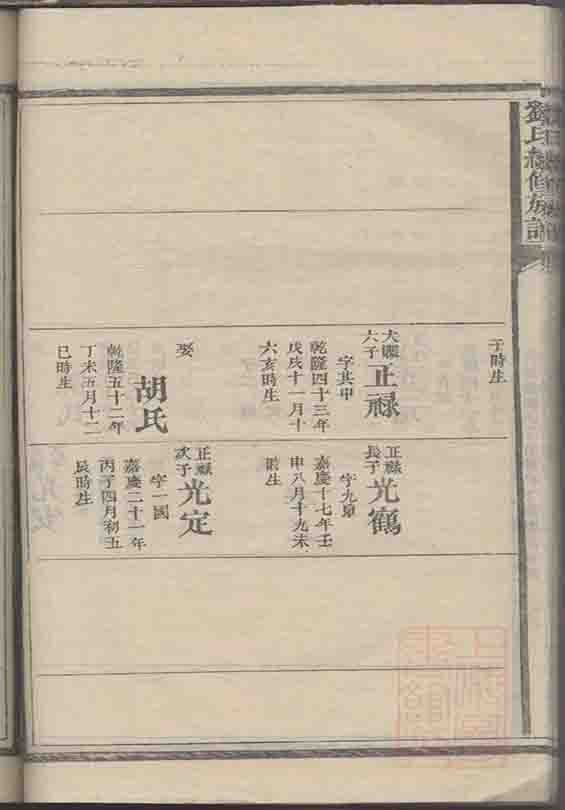 劉氏續修族譜
子時生
大順六子
正祿
字其中
乾隆四十三年
戊戌十一月十
六亥時生
娶
胡氏
乾隆五十二年
丁未五月十二
巳時生
正祿長子
光鶴
字九皐
嘉慶十七年壬
申八月十九未
時生
正祿次子
光定
字一國
嘉慶二十一年
丙子四月初五
辰時生